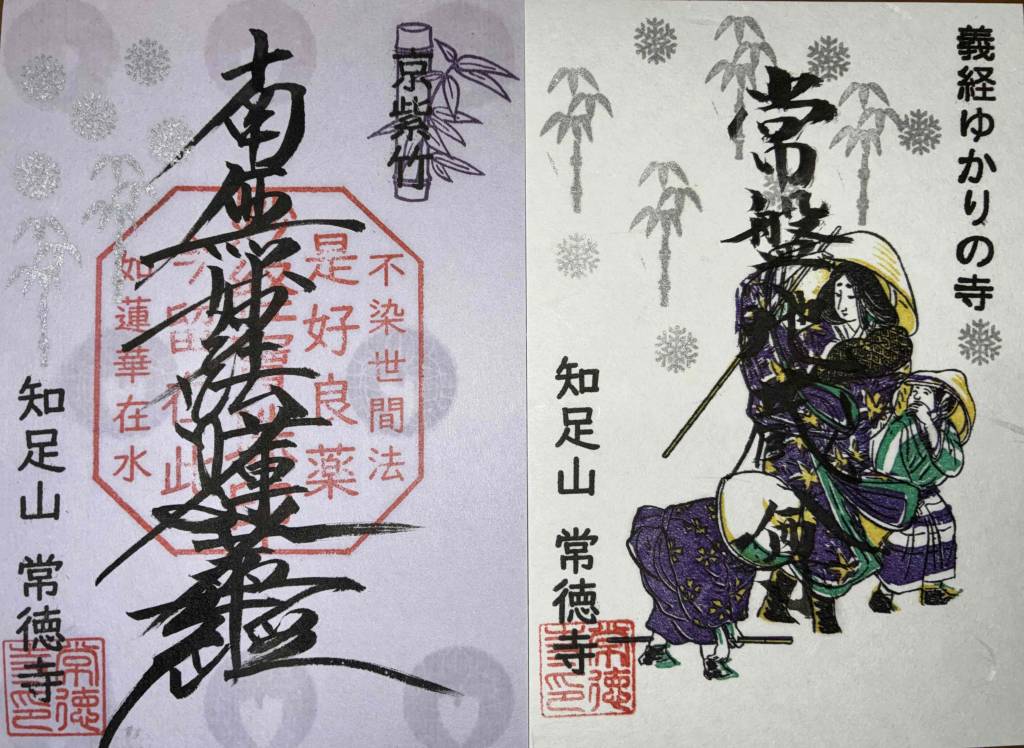 京紫竹
南無妙法蓮華経
不染世間法
是好良薬
今留在此
如蓮華在水
知足山 常徳寺
常徳寺印
義経ゆかりの寺
常盤地蔵尊
知足山 常徳寺
常徳寺印